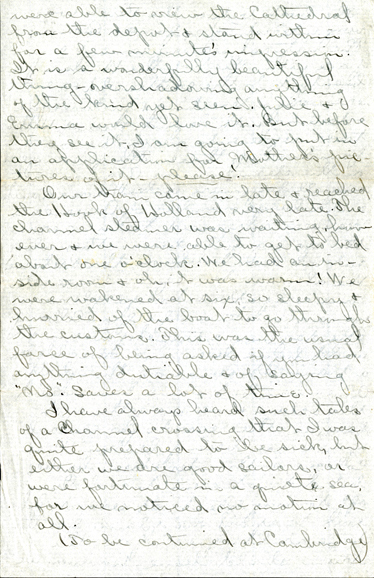 were able to view the Cathedral
from the depot & stand within
for a few minute's impression.
It is a wonderfully beautiful
thing - overshadowing anything
of the kind yet seen. &
Emma would love it. But before
they see it, I am going to put in
an application for Mother's pic-
tures of it - please!
Our train came in late & reached
the Hook of Holland very late. The
channel steamer was waiting, how-
ever & we were able to get to bed
about one o'clock. We had an in-
side room & oh, it was warm! We
were wakened at six, so sleepy &
hurried off the boat to go through
the customs. This was the usual
farce of being asked if you had
anything dutiable & of saying
"No". Saves a lot of time.
I have always heard such tales
of a Channel crossing that I was
quite prepared to be sick, but
either we are good sailors, or
were fortunate in a quiet sea,
for we noticed no motion at
all.
(To be continued at Cambridge)